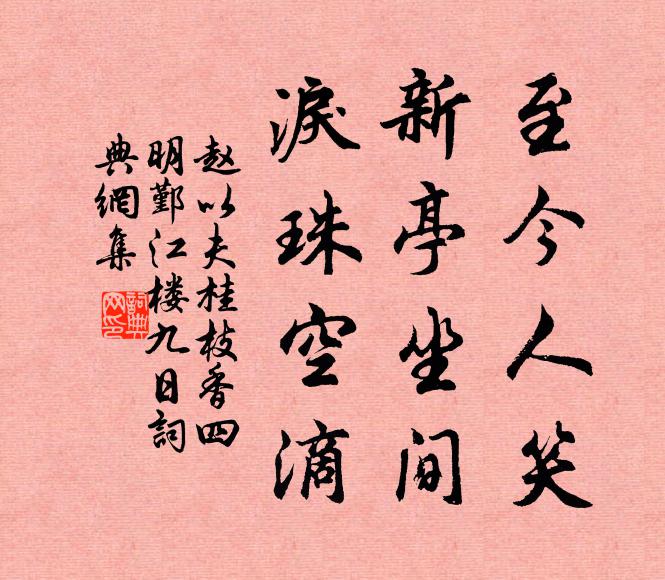 至今人笑
新亭坐間
淚珠空滴
赵以夫桂枝香四
明鄞江楼九日詞
典網集
詞典
网印